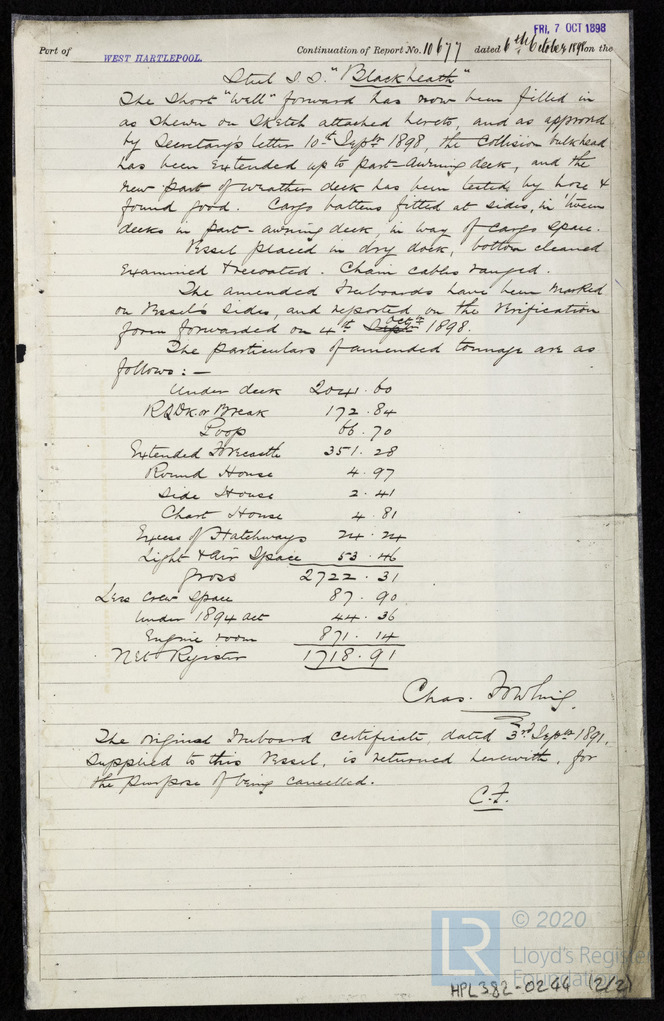 FRI. 7 OCT 1898
Port of WEST HARTLEPOOL. Continuation of Report No. 10677 dated 6th October 1898 on the
Steel S.S. "Blackheath"
The Short "Well" forward has now been filled in
as shewn on Sketch attached hereto, and as approved
by Secretary's letter 10th Septr 1898, the Collision bulkhead
has been extended up to part-awning deck, and the
new part of weather deck has been tested by hose &
found good. Cargo battens fitted at sides, in 'tween
decks in part-awning deck, in way of cargo space.
Vessel placed in dry dock, bottom cleaned
examined & recoated. Chain cables ranged.
The amended Freeboards have been marked
on Vessel's sides, and reported on the Verification
form forwarded on 4th Octr 1898.
The particulars of amended tonnage are as
follows:-
Under deck 2041.60
RQDk or Break 172.84
Poop 66.70
Extended Forecastle 351.28
Round House 4.97
Side House 2.41
Chart House 4.81
Excess of Hatchways 24.24
Light & Air Space 53.46
Gross 2722.31
Less Crew Space 87.90
Under 1894 act 44.36
Engine room 871.14
Net Register 1718.91
Chas.
The original Freeboard Certificate, dated 3rd Septr 1891,
supplied to this Vessel, is returned herewith, for
the purpose of being cancelled.
C.F.
LR © 2020
Lloyd's Register
Foundation
HPL382-0244 (2/2)